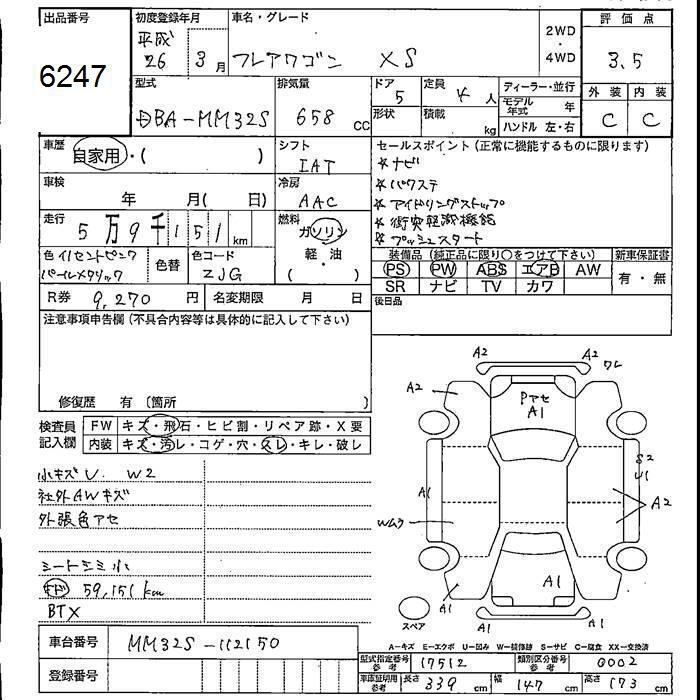 出品番号
6247
初度登録年月
平成
26 3月
車名・グレード
フレアワゴン XS
2WD
・
4WD
評価点
3.5
外装 内装
C C
型式
DBA-MM32S
排気量
658 cc
ドア
5
形状
定員
4 人
積載
kg
ディーラー・並行
モデル年式 年
ハンドル 左・右
車歴
自家用・( )
シフト
IAT
セールスポイント(正常に機能するものに限ります)
☆ナビ
☆パワステ
☆アイドリングストップ
☆衝突軽減機能
☆プッシュスタート
車検
年 月( 日)
冷房
AAC
走行
5万9千151km
燃料
ガソリン
軽・油
( )
色イノセントピンク
パールメタリック
色替
色コード
ZJG
装備品(純正品に限り○をつけて下さい)
PS PW ABS エアB AW
SR ナビ TV カワ
新車保証書
有・無
R券 9,270円
名変期限 月 日
後日品
注意事項申告欄(不具合内容等は具体的に記入して下さい)
修復歴 有〔箇所 〕
検査員
記入欄
FW キズ・飛石・ヒビ割・リペア跡・X要
内装 キズ・汚レ・コゲ・穴・スレ・キレ・破レ
小キズU. W2
社外AWキズ
外張色アセ
シートシミ小
59,151km
BTX
A2
A2
ワレ
A2
Pアセ
A1
S2
U1
A1
A2
Wムラ
A1
A1
A1
スペア
車台番号
MM32S-112150
登録番号
A-キズ E-エクボ U-凹み W-補修跡 S-サビ C-腐食 XX-交換済
型式指定番号
参考
17512
類別区分番号
参考
0002
車庫証明用
参考
長さ 339 cm
幅 147 cm
高さ 173 cm